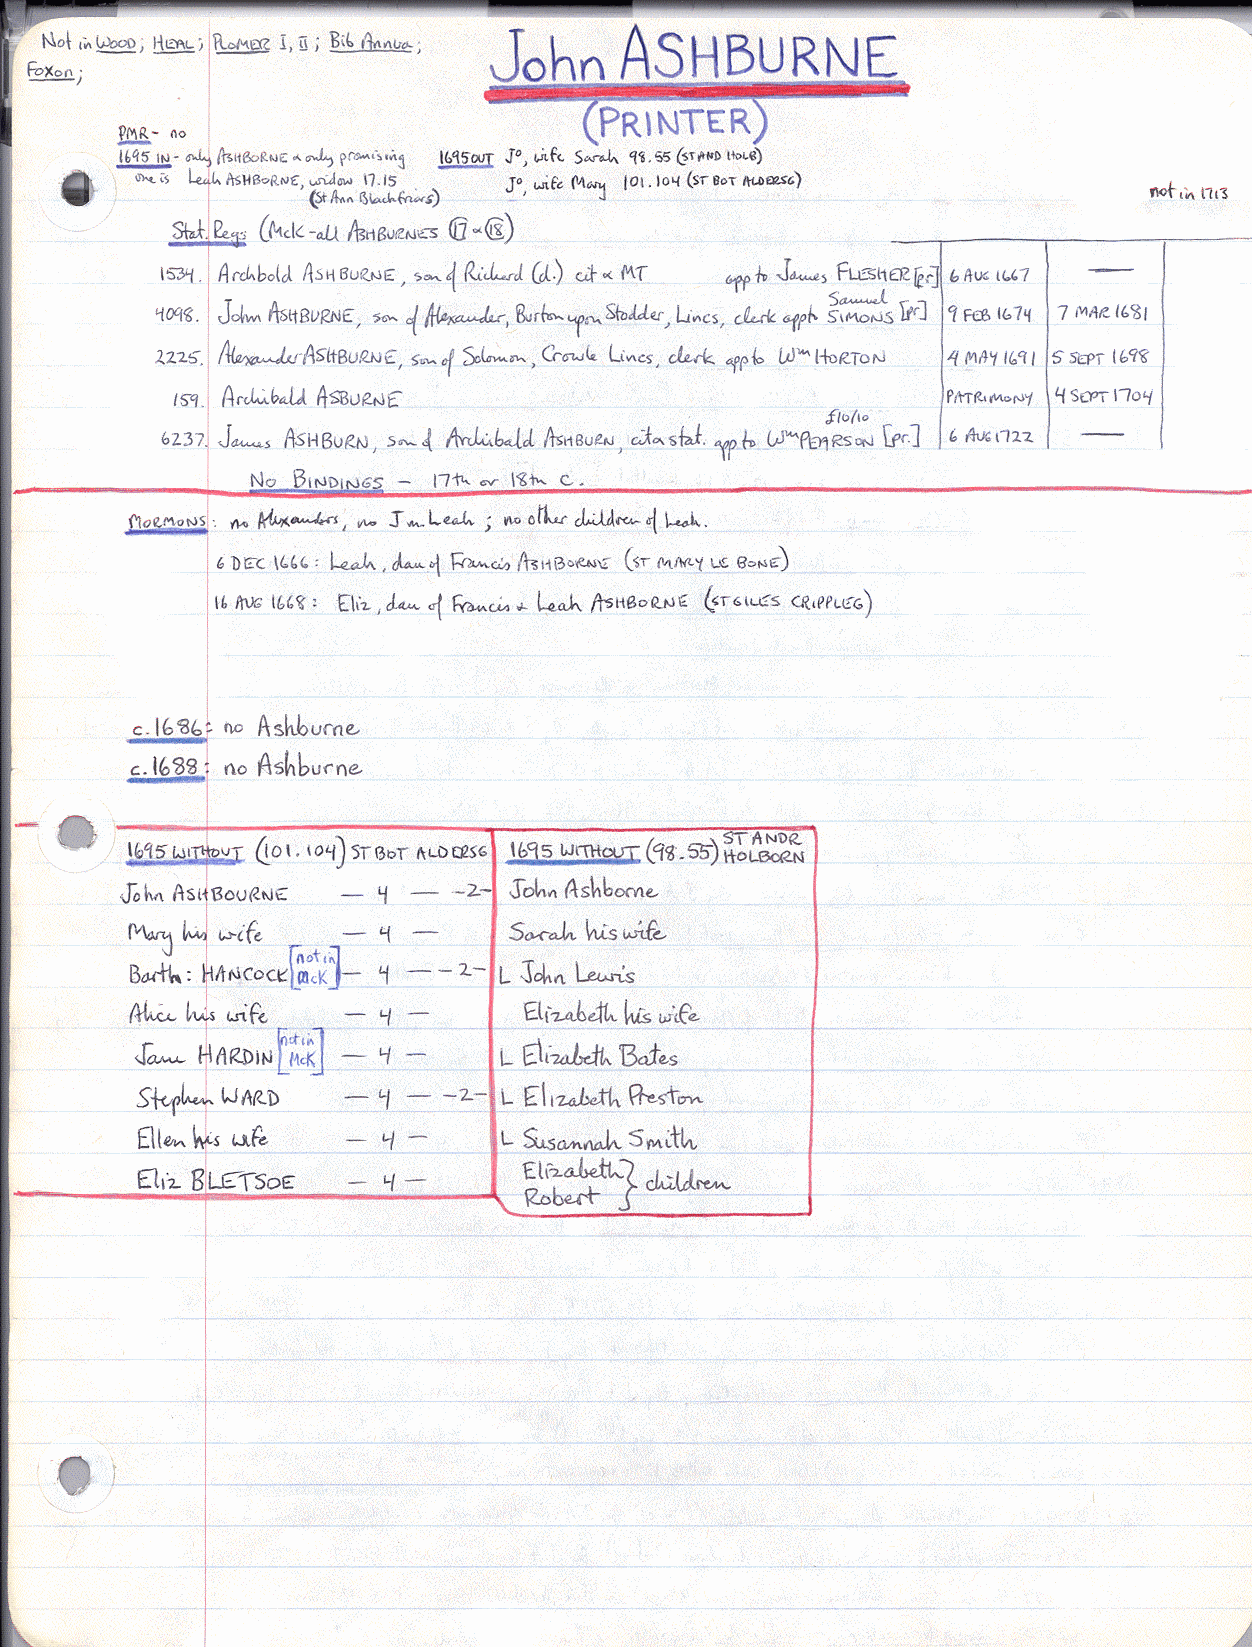 Not in WOOD; HEAL; PLOMER I, II; Bib Annua;
Foxon;
John ASHBURNE
(PRINTER)
PMR - no
1695 IN - only ASHBORNE & only promising
one is Leah ASHBORNE, widow 17.15
(St Ann Blackfriars)
1695 OUT Jº, wife Sarah 98.55 (ST AND HOLB)
Jº, wife Mary 101.104 (ST BOT ALDERSG)
not in 1713
Stat. Regs (McK - all ASHBURNES 17 & 18)
1534. Archbold ASHBURNE, son of Richard (d.) cit & MT app to James FLESHER [pr] 6 AUG 1667 —
4098. John ASHBURNE, son of Alexander, Burton upon Stodder, Lincs, clerk app to Samuel SIMONS [pr] 9 FEB 1674 7 MAR 1681
2225. Alexander ASHBURNE, son of Solomon, Crowle Lincs, clerk app to Wm HORTON 4 MAY 1691 5 SEPT 1698
159. Archibald ASBURNE PATRIMONY 4 SEPT 1704
£10/10
6237. James ASHBURN, son of Archibald ASHBURN, cit & stat. app to Wm PEARSON [pr.] 6 AUG 1722 —
NO BINDINGS - 17th or 18th C.
MORMONS: no Alexanders, no J m. Leah; no other children of Leah.
6 DEC 1666: Leah, dau of Francis ASHBORNE (ST MARY LE BONE)
16 AUG 1668: Eliz, dau of Francis & Leah ASHBORNE (ST GILES CRIPPLEG)
c.1686: no Ashburne
c.1688: no Ashburne
1695 WITHOUT (101.104) ST BOT ALDERSG
John ASHBOURNE — 4 — -2-
Mary his wife — 4 —
Barth: HANCOCK [not in McK] — 4 — -2-
Alice his wife — 4 —
Jane HARDIN [not in McK] — 4 —
Stephen WARD — 4 — -2-
Ellen his wife — 4 —
Eliz BLETSOE — 4 —
1695 WITHOUT (98.55) ST ANDR HOLBORN
John Ashborne
Sarah his wife
L John Lewis
Elizabeth his wife
L Elizabeth Bates
L Elizabeth Preston
L Susannah Smith
Elizabeth } children
Robert